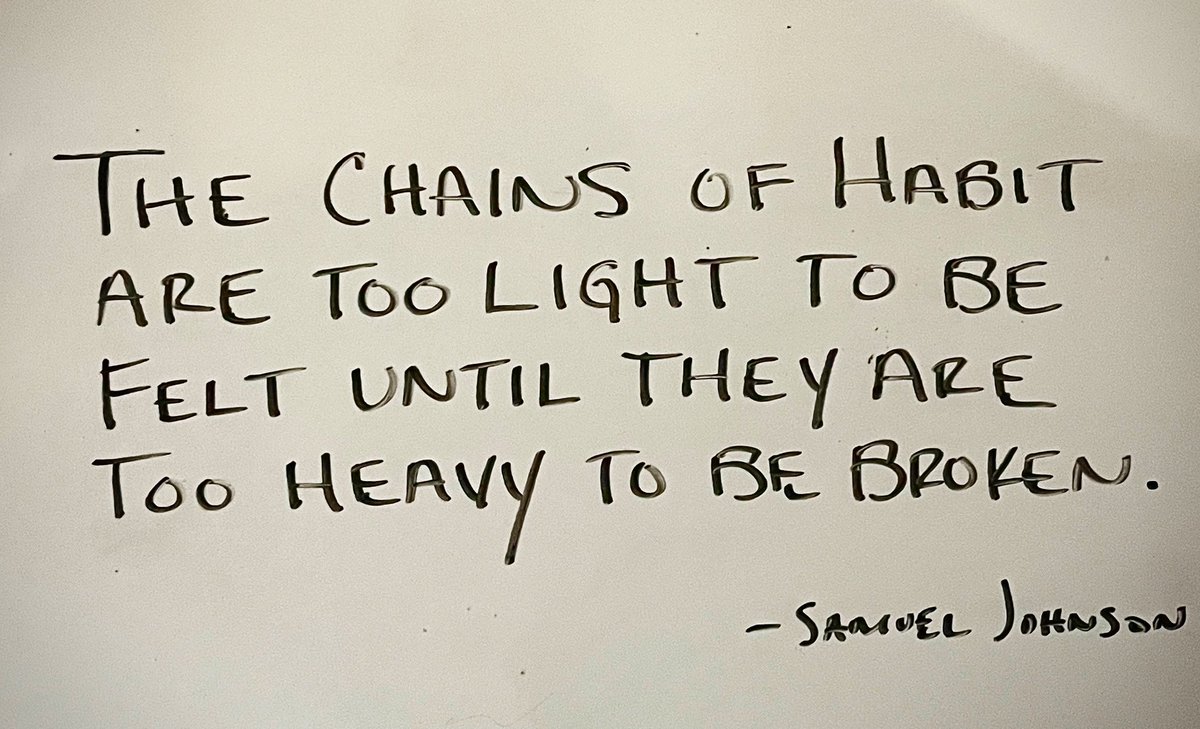 THE CHAINS OF HABIT
ARE TOO LIGHT TO BE
FELT UNTIL THEY ARE
TOO HEAVY TO BE BROKEN.
- SAMUEL JOHNSON